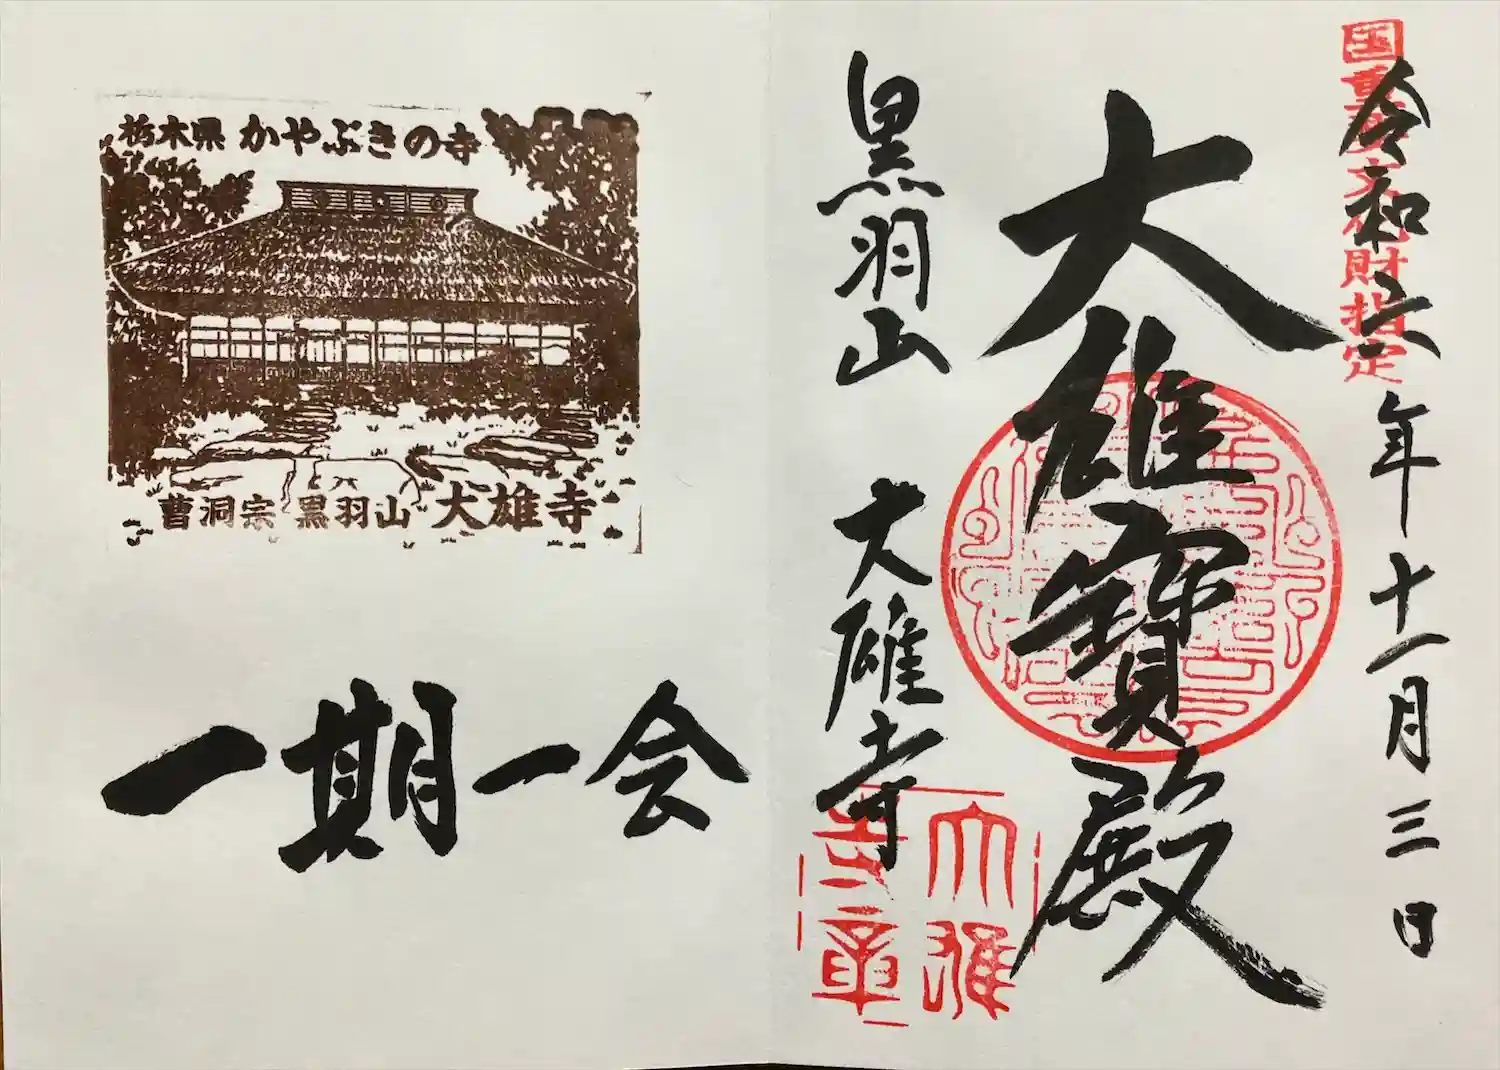 国重要文化財指定
令和六年十一月三日
大雄寳殿
黒羽山 大雄寺
大雄
寺章
栃木県 かやぶきの寺
曹洞宗 黒羽山 大雄寺
一期一会